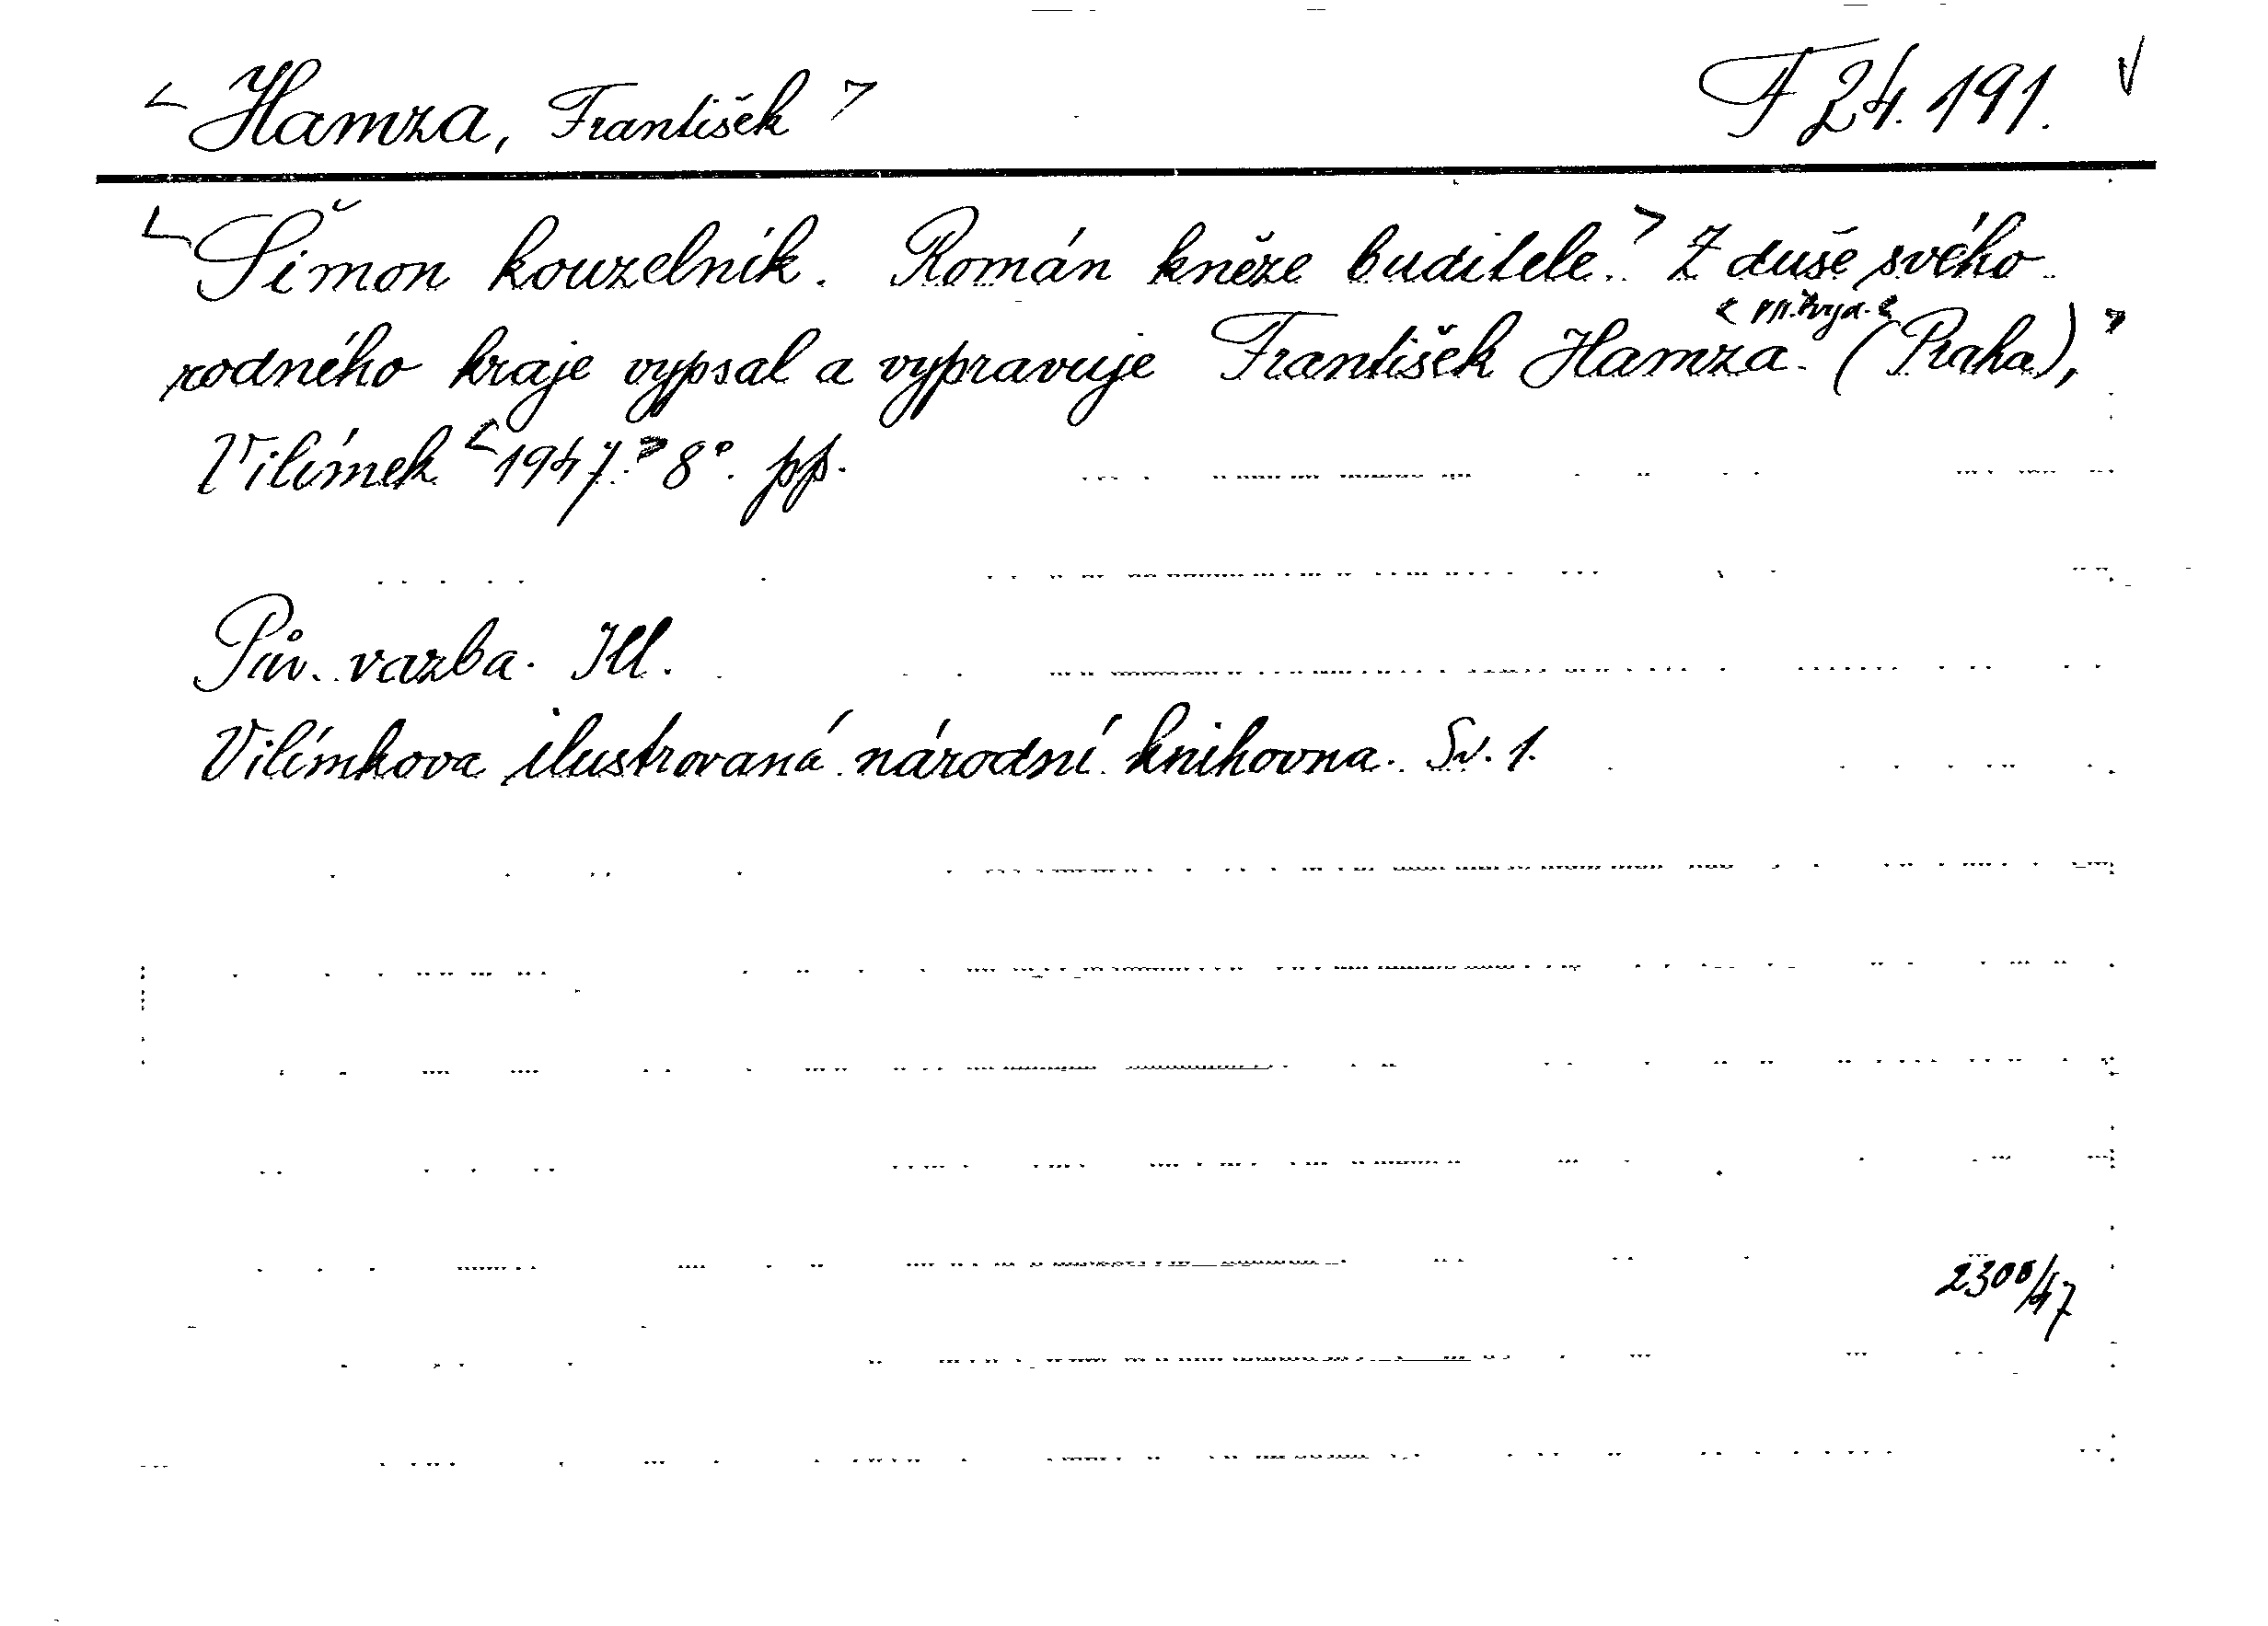 Hamza, František F 24.191.
Šimon kouzelník. Román kněze buditele. Z duše svého
rodného kraje vypsal a vypravuje František Hamza. (Praha),
Vilímek 1947. 8°. pp.
Pův. vazba. Ill.
Vilímkova ilustrovaná národní knihovna. Sv. 1.
2300/47